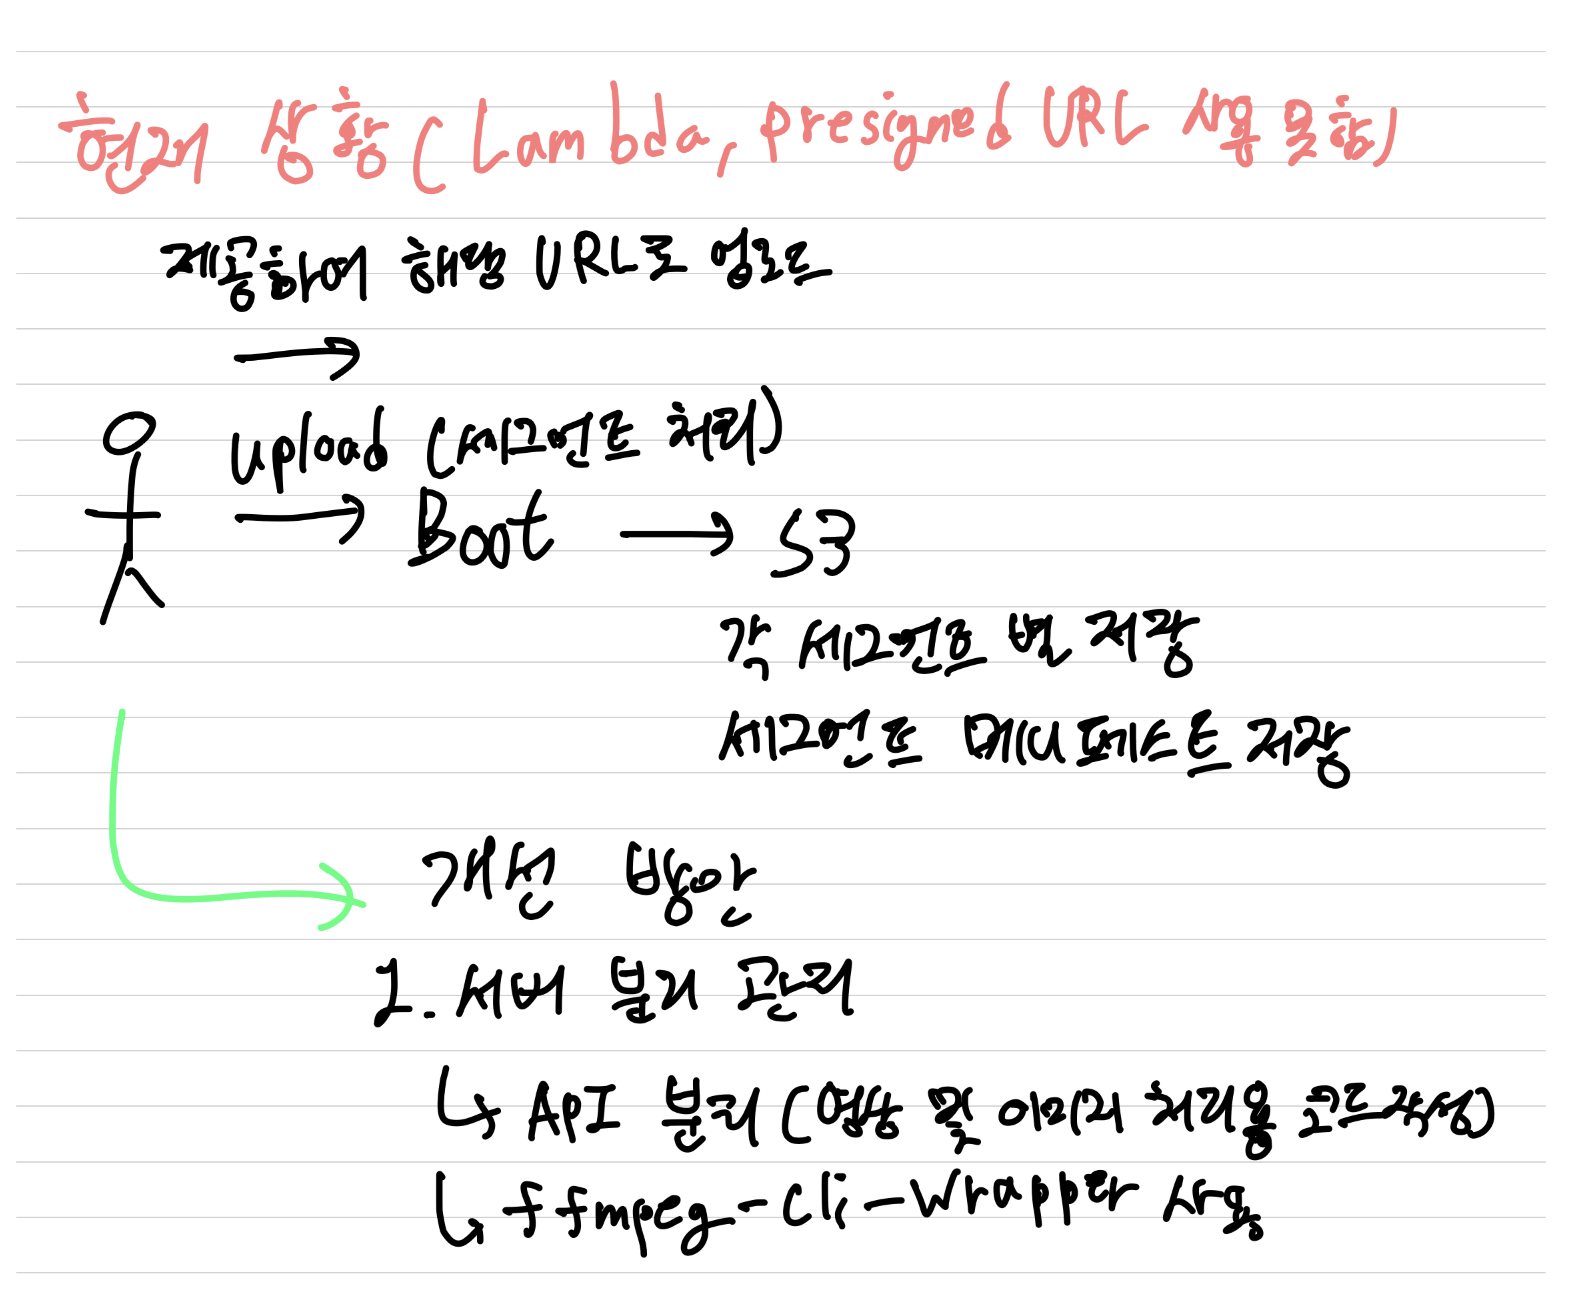 현재 상황 (Lambda, presigned URL 사용 못함)
제공하여 해당 URL로 업로드
upload (세그먼트 처리)
Boot → S3
각 세그먼트 별 저장
세그먼트 메니페스트 저장
개선 방안
1. 서버 분리 관리
↳ API 분리 (영상 및 이미지 처리용 코드 작성)
↳ ffmpeg-cli-wrapper 사용